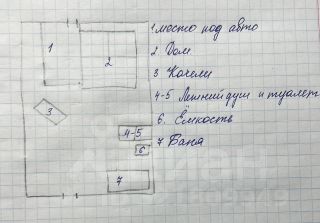 1 место под авто
2 Дом
3 Качели
4-5 Летний душ и туалет
6. Ёмкость
7 Баня
1
2
3
4-5
6
7